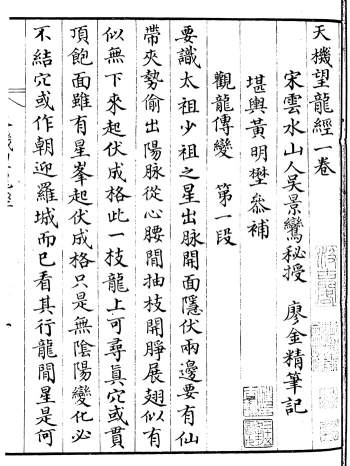 天機望龍經一卷
宋雲水山人吳景鸞秘授　廖金精筆記
堪輿黃明埜叅補
觀龍傳變　第一段
要識太祖少祖之星出脉開面隱伏兩邊要有仙
帶夾勢偷出陽脉從心腰閒抽枝開脝展翅似有
似無下來起伏成格此一枝龍上可尋眞穴或貫
頂飽面雖有星峯起伏成格只是無陰陽變化必
不結穴或作朝迎羅城而已看其行龍閒星是何